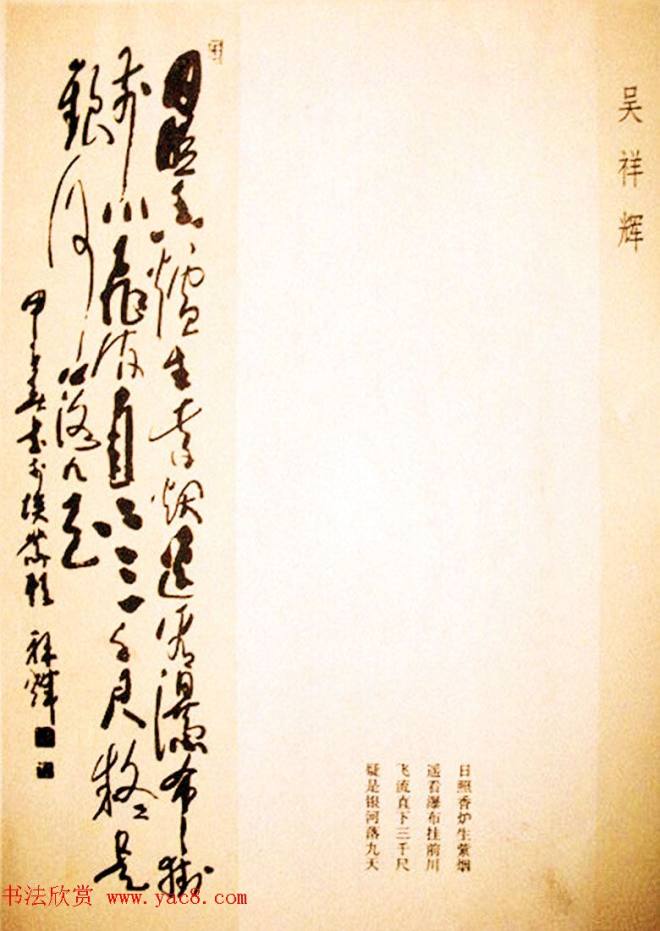 吴祥辉
日照香炉生紫烟
遥看瀑布挂前川
飞流直下三千尺
疑是银河落九天
日照香爐生紫烟遥看瀑布掛
前川飛流直下三千尺疑是
銀河落九天
祥輝
书法欣赏 www.yac8.com